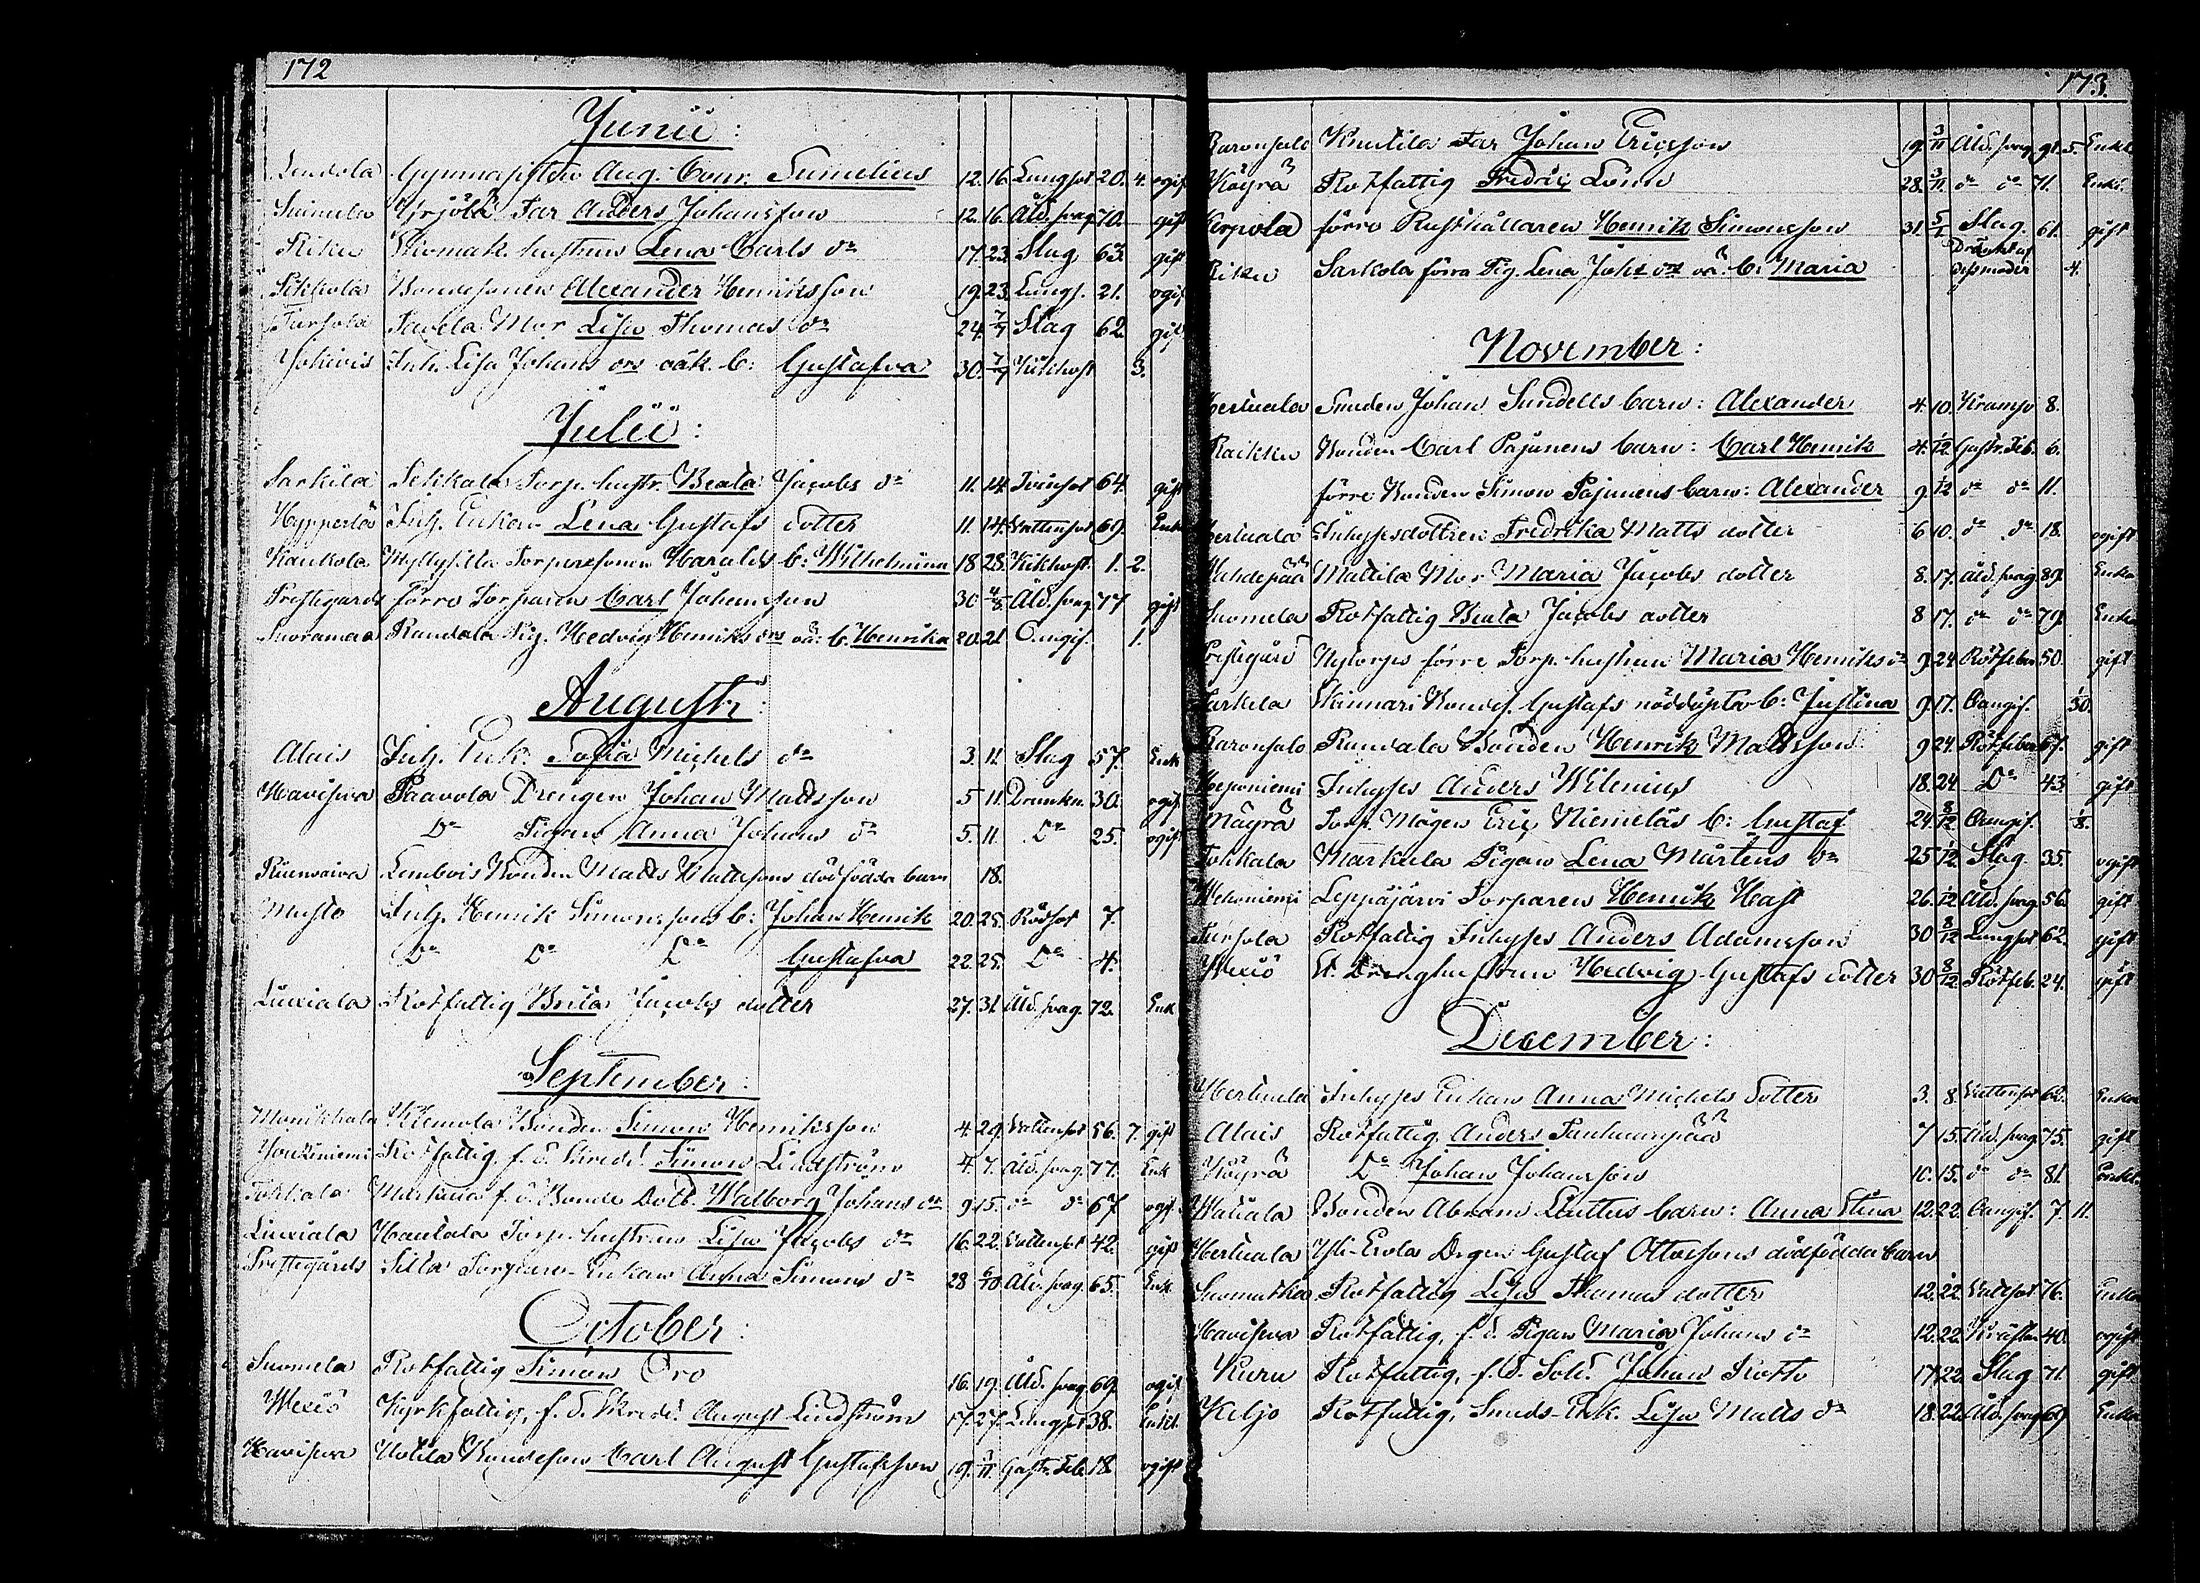 172
Junii:
Lendola Gymnasisten Aug. Conr. Sumelius 12. 16. Lungsot 20. 4. ogift
Suimula Yrjölä Far Anders Johansson 12. 16. Åld. svag. 70. gift
Riku Thomak hustrun Lena Carls dr 17. 23. Slag 63. gift
Sikkola Bondesonen Alexander Henriksson 19. 23. Lungs. 21. ogift
Tursola Pavela Mor Lisa Thomas dr 24. 7/7 Slag 62. gift
Inh. Lisa Johans drs oäk. b: Gustafva 30. 7/7 Kikhost 3.
Julii:
Sarkila Sikkala Torp. hustr. Beata Jacobs dr 11. 14. Tvinsot 64. gift
Hypperlä Inh. Enkan Lena Gustafs dotter 11. 14. Vattensot 69. Enka
Kankola Myllysilla Torparesonen Haralds b: Wilhelmina 18 25. Kikhost. 1. 2.
Prestegårds förre Torparen Carl Johansson 30 4/8 Åld. svag. 77 gift
Randala Pig. Hedvig Henriks drs oä: b. Henrika 20. 21. Oangif. 1.
Augusti:
Alais Inh. Enk. Sofia Michels dr 3. 11. Slag 57. Enk
Havisova Paavola Drengen Johan Mattsson 5 11. Drunkn. 30. ogift
Do Pigan Anna Johans dr 5. 11. Do 25. ogift
Lembois Bonden Matts Mattssons dödfödda barn 18.
Musto Inh. Henrik Simonssons b: Johan Henrik 20. 25. Rödsot 7.
Do Do Do Gustafva 22 25. Do 4.
Liuxiala Rotfattig Brita Jacobs dotter 27. 31. Åld. svag. 72. Enk
September:
Monikkala Klemola Bonden Simon Henriksson 4. 29. Vattensot 56. 7. gift
Joutiniemi Rotfattig, f. d. Skredd. Simon Lindström 4. 7. Åld. svag. 77. Enk
Tohkala Markula f. d. Bonde Dott. Walborg Johans dr 9. 15. do do 67 ogif.
Liuxiala Hautala Torp. hustrun Lisa Jacobs dr 16. 22. Vattensot 42. gift
Prestegårds Silla Torpare-Enkan Anna Simons dr 28 6/10 Åld. svag. 65. Enk
October:
Suomela Rotfattig Simon Oro 16. 19. Åld. svag. 69. ogift
Wexiö Kyrkfattig, f. d. Skredd. August Lindström 17. 27. Lungsot 38. Enkl.
Havisova Uotila Bondeson Carl August Gustafsson 19. 3/11. Gastr. Feb 18. ogift
173.
Knutila Far Johan Ericsson 19. 3/11 Åld. svag. 91. 5. Enkl
Köyrä Rotfattig Fredric Lönn 28. 3/11. do do 71. Enkl.
Kerpola förre Rusthållaren Henrik Simonsson 31. Slag. 61. gift
Riku Sarkola förra Pig. Lena Joh: drs oä: b: Maria Dränkt af dess moder 4.
November:
Hertuala Smeden Johan Sundells barn: Alexander 4. 10. Kramp 8.
Raikku Bonden Carl Pajunens barn: Carl Henrik 4. 1/12 Gastr. Feb. 6.
förre Bonden Simon Pajunens barn: Alexander 9. 1/12 do do 11.
Hertuala Inhysesdottren Fredrika Matts dotter 6 10. do do 18. ogift
Vehdepää Mattila Mor Maria Jacobs dotter 8. 17. Åld. svag. 89. Enka
Suomela Rotfattig Beata Jacobs dotter 8 17. do do 79. Enka
Prestegård Nytorps förre Torp. hustrun Maria Henriks dr 9. 24 Rötfeber 50. gift
Sarkila Kinnari Bondes. Gustafs nöddöpta b: Justina 9. 17. Oangif. 1/30.
Randala Bonden Henrik Mattsson 9 24. Rötfeber 67. gift
Inhyses Anders Wilenius 18. 24 Do 43. gift
Mäyrä Torp. Mågen Eric Niemeläs b: Gustaf 24. 8/12 Oangif. 1/8.
Tohkala Markula Pigan Lena Mårtens dr 25 1/12 Slag. 35. ogift
Leppäjärvi Torparen Henrik Hast 26. 1/12 Åld. svag. 56. gift
Tursola Rotfattig Inhyses Anders Adamsson 30 8/12 Lungsot 62. gift
Wexiö St. Dränghustrun Hedvig Gustafs dotter 30 8/12 Rötfeb. 24. gift
December:
Hertuala Inhyses Enkan Anna Michels dotter 3. 8. Vattensot 62. Enka
Alais Rotfattig. Anders Tanhuanpää 7 15. Åld. svag. 75. gift
Köyrä Do Johan Johansson 10. 15. do do 81 Enkl.
Bonden Abram Lintus barn: Anna Stina 12. 22. Oangif. 7. 11.
Hertuala Yli-Erola Drgen Gustaf Ottossons dödfödda barn
Rotfattig Lisa Thomas dotter 12. 22. Vattsot 76. Enka
Havisova Rotfattig, f. d. Pigan Maria Johans dr 12. 22. Kräftan 40. ogift
Kuru Rotfattig, f. d. Sold. Johan Rotto 17. 22 Slag 71 gift
Keljo Rotfattig, Smeds-Enk. Lisa Matts dr 18. 22. Åld. svag 69 Enka